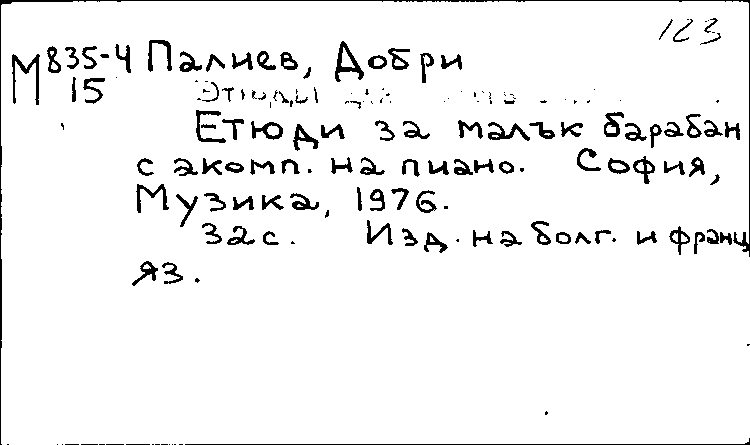 123
М 835-4 Палиев, Добри
15 Этюды для
Етюди за малък барабан
с акомп. на пиано. София,
Музика, 1976.
32с. Изд. на болг. и франц
яз.